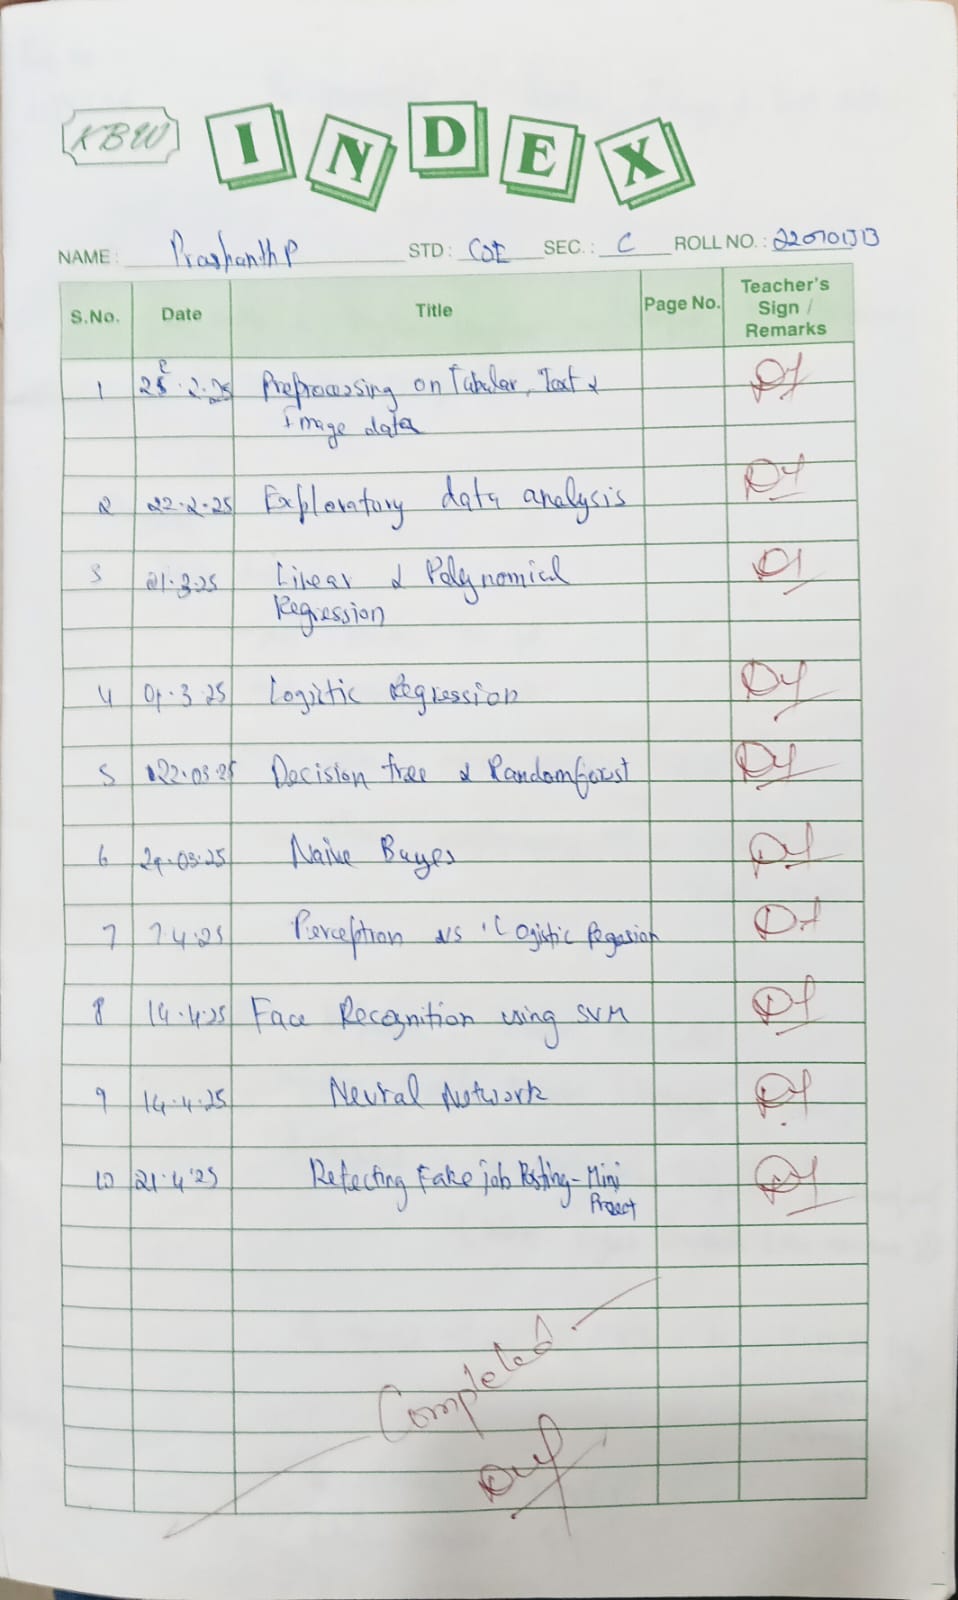 KBW INDEX
NAME : Prashanth P STD : CSE SEC. : C ROLL NO. :
S.No. Date Title Page No. Teacher's Sign / Remarks
1 Preprocessing on Tabular, Text &
Image data
2 22.2.25 Exploratory data analysis
3 01.3.25 Linear & Polynomial
Regression
4 01.3.25 Logistic Regression
5 22.03.25 Decision tree & Randomforest
6 29.03.25 Naive Bayes
7 7.4.25 Perceptron vs Logistic
8 14.4.25 Face Recognition using SVM
9 14.4.25 Neural Network
10 21.4.25 Fake job Posting - Mini
Project
Completed